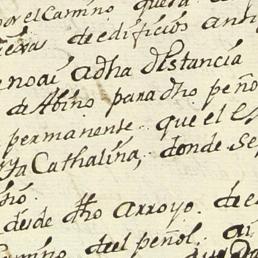 por el Camino que va de
de edificios anti
no ai adha distancia
de Abino para dho peño
permanente que el
Sta Cathalina, donde se
desde dho Arroyo de
Camino del peñol, ai